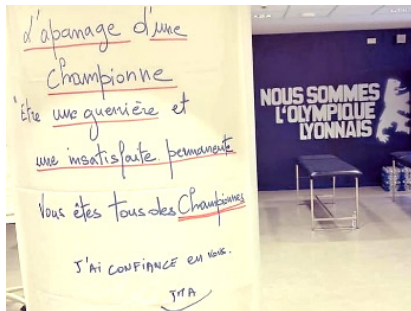 L'apanage d'une
Championne
"Être une guerrière et
une insatisfaite permanente
Vous êtes tous des Championnes
J'AI CONFIANCE en vous.
JMA
NOUS SOMMES
L'OLYMPIQUE
LYONNAIS